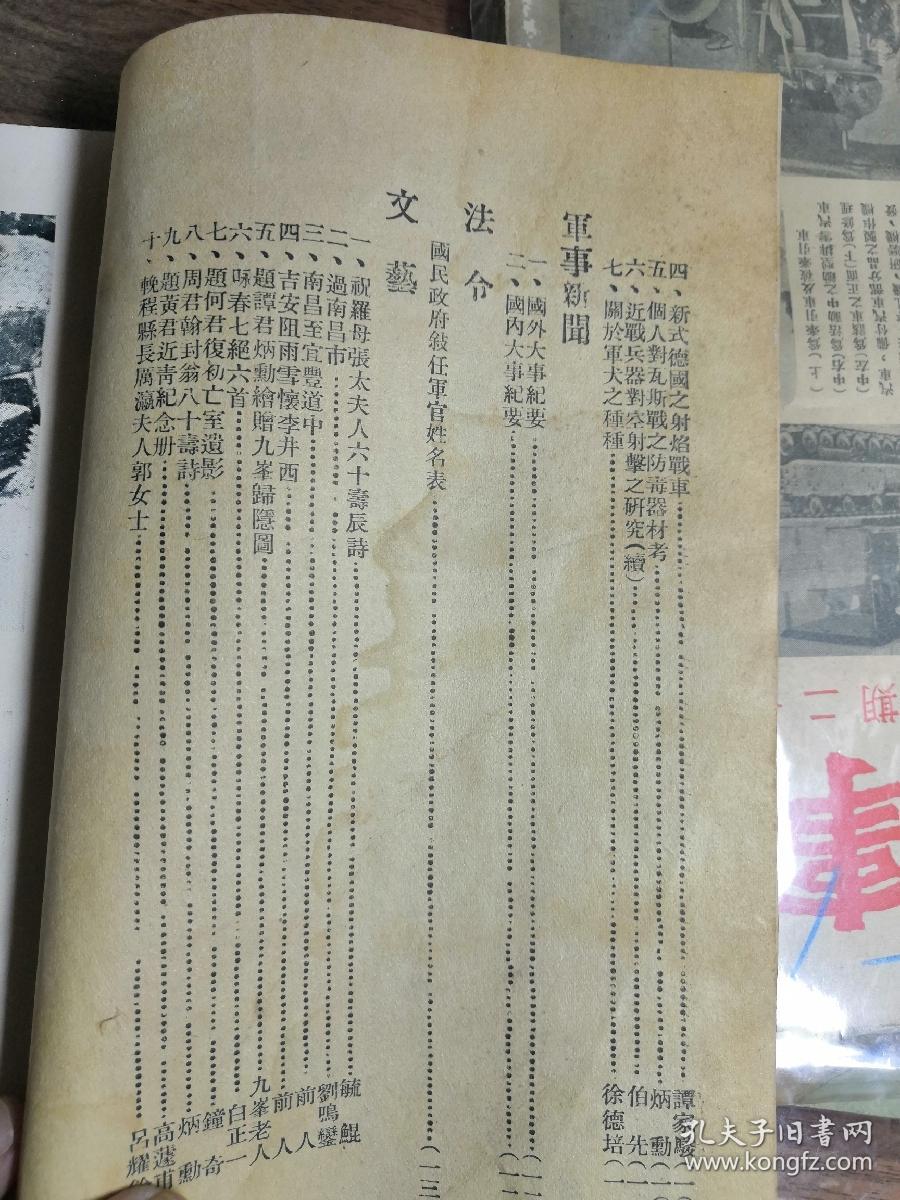 四、新式德國之射焰戰車……譚家駿
五、個人對瓦斯戰之防毒器材考……炳勳
六、近戰兵器對空射擊之研究(續)……伯先
七、關於軍犬之種種……徐德培
軍事新聞
一、國外大事紀要
二、國內大事紀要
法令
國民政府敍任軍官姓名表……(一三
文藝
一、祝羅母張太夫人六十壽辰詩……毓鯤
二、過南昌市……劉鳴鑾
三、南昌至宜豐道中……前人
四、吉安阻雨雪懷李井西……前人
五、題譚君炳勳繪贈九峯歸隱圖……九峯老人
六、咏春七絕六首……白正一
七、題何君復初亡室遺影……鐘奇
八、周君翰封翁八十壽詩……炳勳
九、題黃君近靑紀念册……高蘧甫
十、輓程縣長厲瀛夫人郭女士……呂耀
孔夫子旧书网
www.kongfz.com